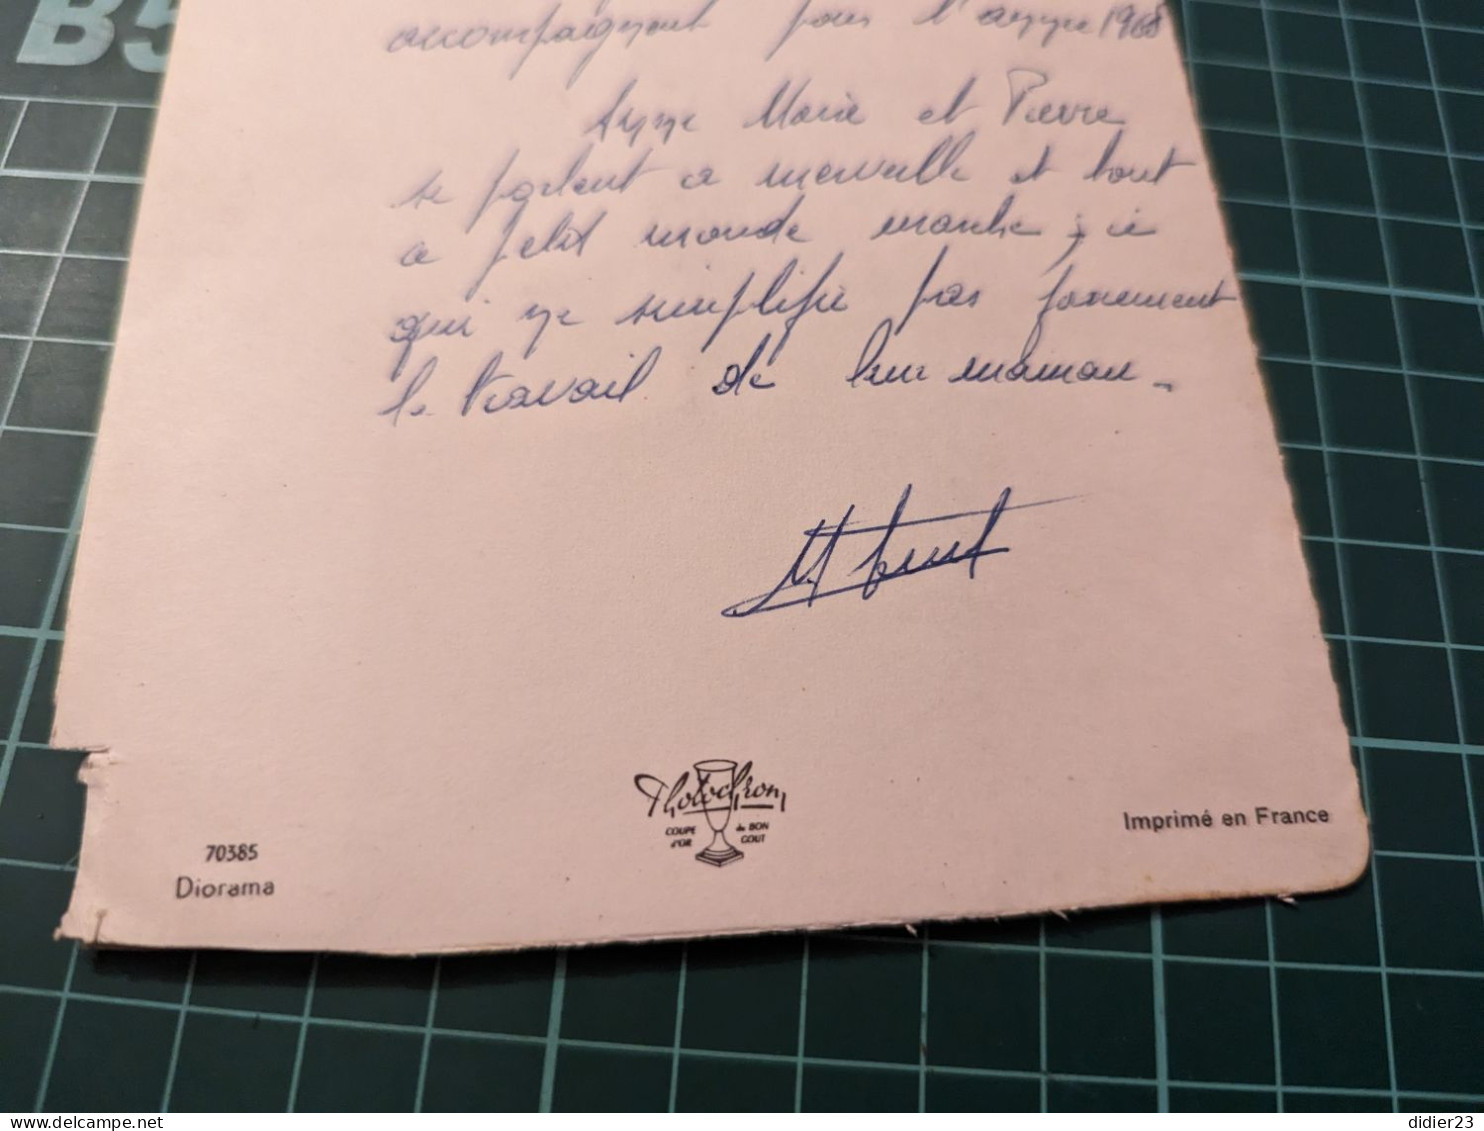 B5
accompagnent pour l'année 1968
Anne Marie et Pierre
se portent a merveille et tout
ce petit monde marche, ce
qui ne simplifie pas forcement
le travail de leur maman.
Photochrom
COUPE D'OR du BON GOUT
70385
Diorama
Imprimé en France
https://www.delcampe.net
didier23